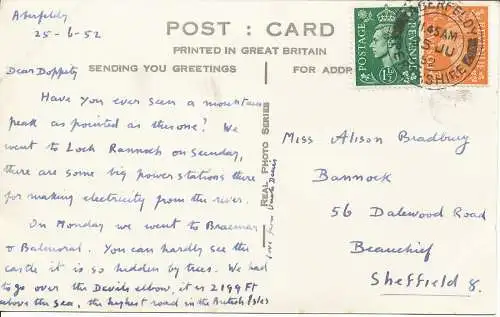 Aberfeldy
25-6-52
POST : CARD
PRINTED IN GREAT BRITAIN
SENDING YOU GREETINGS
FOR ADDR
Dear Doppety
Have you ever seen a mountain
peak as pointed as this one? We
went to Loch Rannoch on Sunday,
there are some big power stations there
for making electricity from the river.
On Monday we went to Braemar
& Balmoral. You can hardly see the
castle it is so hidden by trees. We had
to go over the Devils elbow, it is 2199 FT
above the sea, the highest road in the British Isles
love from Uncle Denis
Real Photo Series
POSTAGE
REVENUE
1½D
ABERFELDY
45AM
5 JU
52
SHIRE
Miss Alison Bradbury
Bannock
56 Dalewood Road
Beauchief
Sheffield 8.